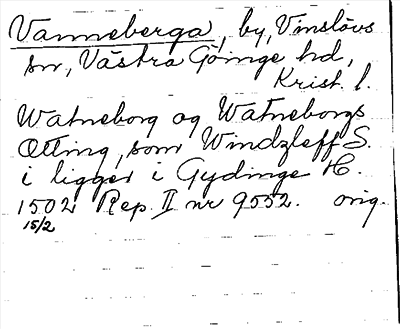 Vanneberga, by, Vinslövs
sn, Västra Göinge hd,
Krist. l.
Watneborg og Watneborgs
Otting, som Windzleff S.
i ligger i Gydinge H.
1502 Rep. II nr 9552. orig.
15/2